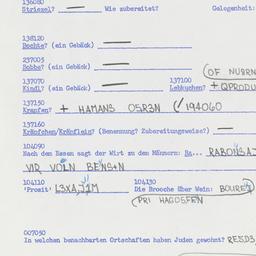 136080
Striezel? — Wie zubereitet? Gelegenheit:
138120
Bochte? (ein Gebäck) —
237005
Bobbe? (ein Gebäck) —
(OF NUBRN
137070 137100
Kindl? (ein Gebäck) — Lebkuchen? + QPRODU
137150
Krapfen? + HAMANS OSR3N (√ 194060
137160
Kräpfchen/Kräpflein? (Benennung? Zubereitungsweise?) —
104090
Nach dem Essen sagt der Wirt zu den Männern: Ra... RABONSAJ
VIR VOLN BENSN
104110 104130
'Prosit' Die Brooche über Wein: BOURE
(PRI HAGOFFEN
007050
In welchen benachbarten Ortschaften haben Juden gewohnt?